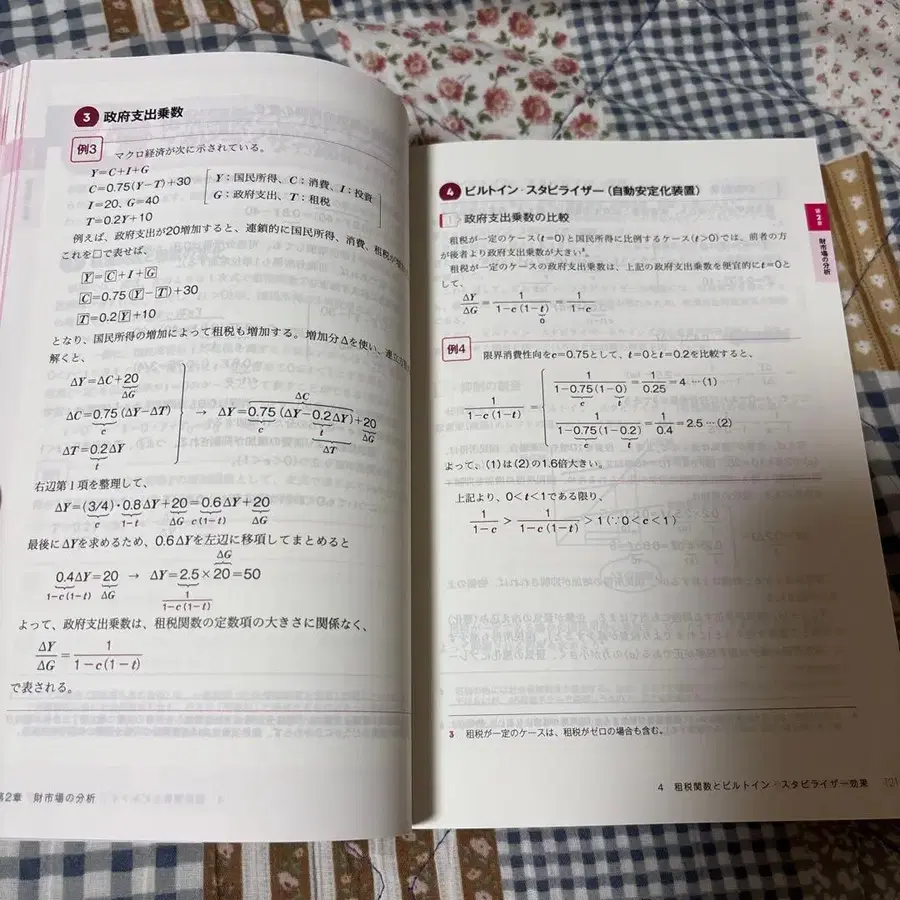 3 政府支出乗数
例3 マクロ経済が次に示されている。
Y=C+I+G
C=0.75(Y−T)+30
I=20, G=40
T=0.2Y+10
Y：国民所得、C：消費、I：投資
G：政府支出、T：租税
例えば、政府支出が20増加すると、連鎖的に国民所得、消費、租税が
これを□で表せば、
Y=C+I+G
C=0.75(Y−T)+30
T=0.2Y+10
となり、国民所得の増加によって租税も増加する。増加分Δを使い、
解くと、
ΔY=ΔC+20
ΔG
ΔC=0.75(ΔY−ΔT)
c
ΔT=0.2ΔY
t
→ ΔY=0.75(ΔY−0.2ΔY)+20
ΔC
c t ΔG
ΔT
右辺第1項を整理して、
ΔY=(3/4)・0.8ΔY+20=0.6ΔY+20
c 1−t ΔG c(1−t) ΔG
最後にΔYを求めるため、0.6ΔYを左辺に移項してまとめると
ΔG
0.4ΔY=20 → ΔY=2.5×20=50
1−c(1−t) ΔG 1/1−c(1−t)
よって、政府支出乗数は、租税関数の定数項の大きさに関係なく、
ΔY/ΔG=1/1−c(1−t)
で表される。
第2章 財市場の分析
4 ビルトイン・スタビライザー（自動安定化装置）
1 政府支出乗数の比較
租税が一定のケース(t=0)と国民所得に比例するケース(t>0)では、前者の方
が後者より政府支出乗数が大きい³。
租税が一定のケースの政府支出乗数は、上記の政府支出乗数を便宜的にt=0と
して、
ΔY/ΔG=1/1−c(1−t)=1/1−c
0
例4 限界消費性向をc=0.75として、t=0とt=0.2を比較すると、
1/1−c(1−t)=
1/1−0.75(1−0)=1/0.25=4…(1)
c t
1/1−0.75(1−0.2)=1/0.4=2.5…(2)
c t
よって、(1)は(2)の1.6倍大きい。
上記より、0<t<1である限り、
1/1−c>1/1−c(1−t)>1(∵0<c<1)
3 租税が一定のケースは、租税がゼロの場合も含む。
4 租税関数とビルトイン・スタビライザー効果 121
第2章
財市場の分析